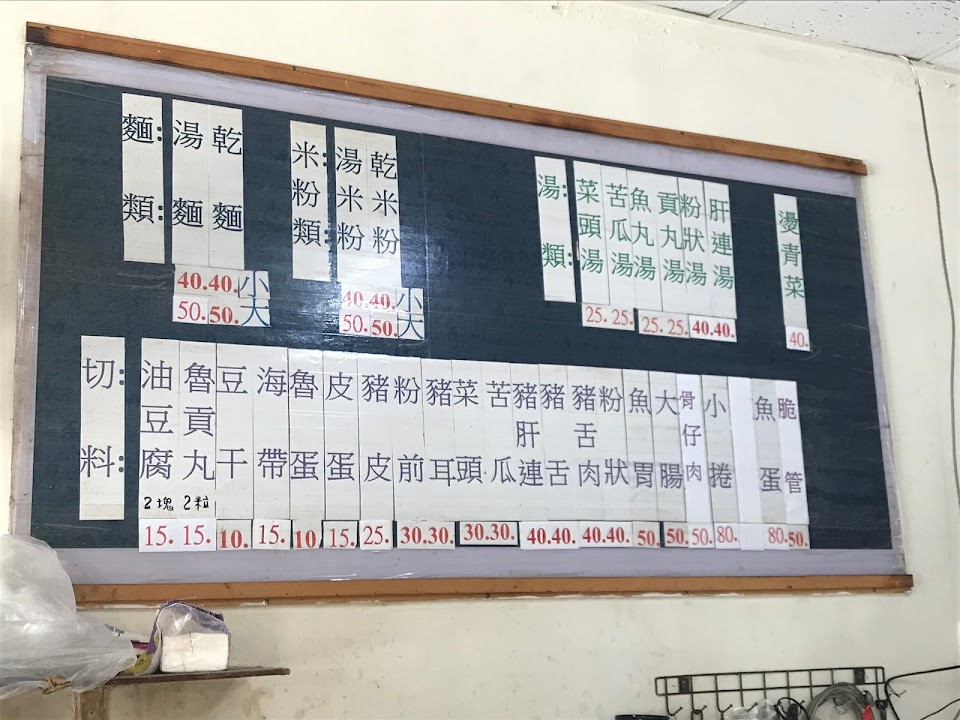 麵類:
湯麵
乾麵
40. 40. 小
50. 50. 大
米粉類:
湯米粉
乾米粉
40. 40. 小
50. 50. 大
湯類:
菜頭湯
苦瓜湯
魚丸湯
貢丸湯
粉狀湯
肝連湯
25. 25. 25. 25. 40. 40.
燙青菜
40.
切料:
油豆腐 2塊
魯貢丸 2粒
豆干
海帶
魯蛋
皮蛋
豬皮
粉前
豬耳
菜頭
苦瓜
豬肝連
豬舌
豬舌肉
粉狀
魚胃
大腸
骨仔肉
小捲
魚蛋
脆管
15. 15. 10. 15. 10. 15. 25. 30. 30. 30. 30. 40. 40. 40. 40. 50. 50. 50. 80. 80. 50.